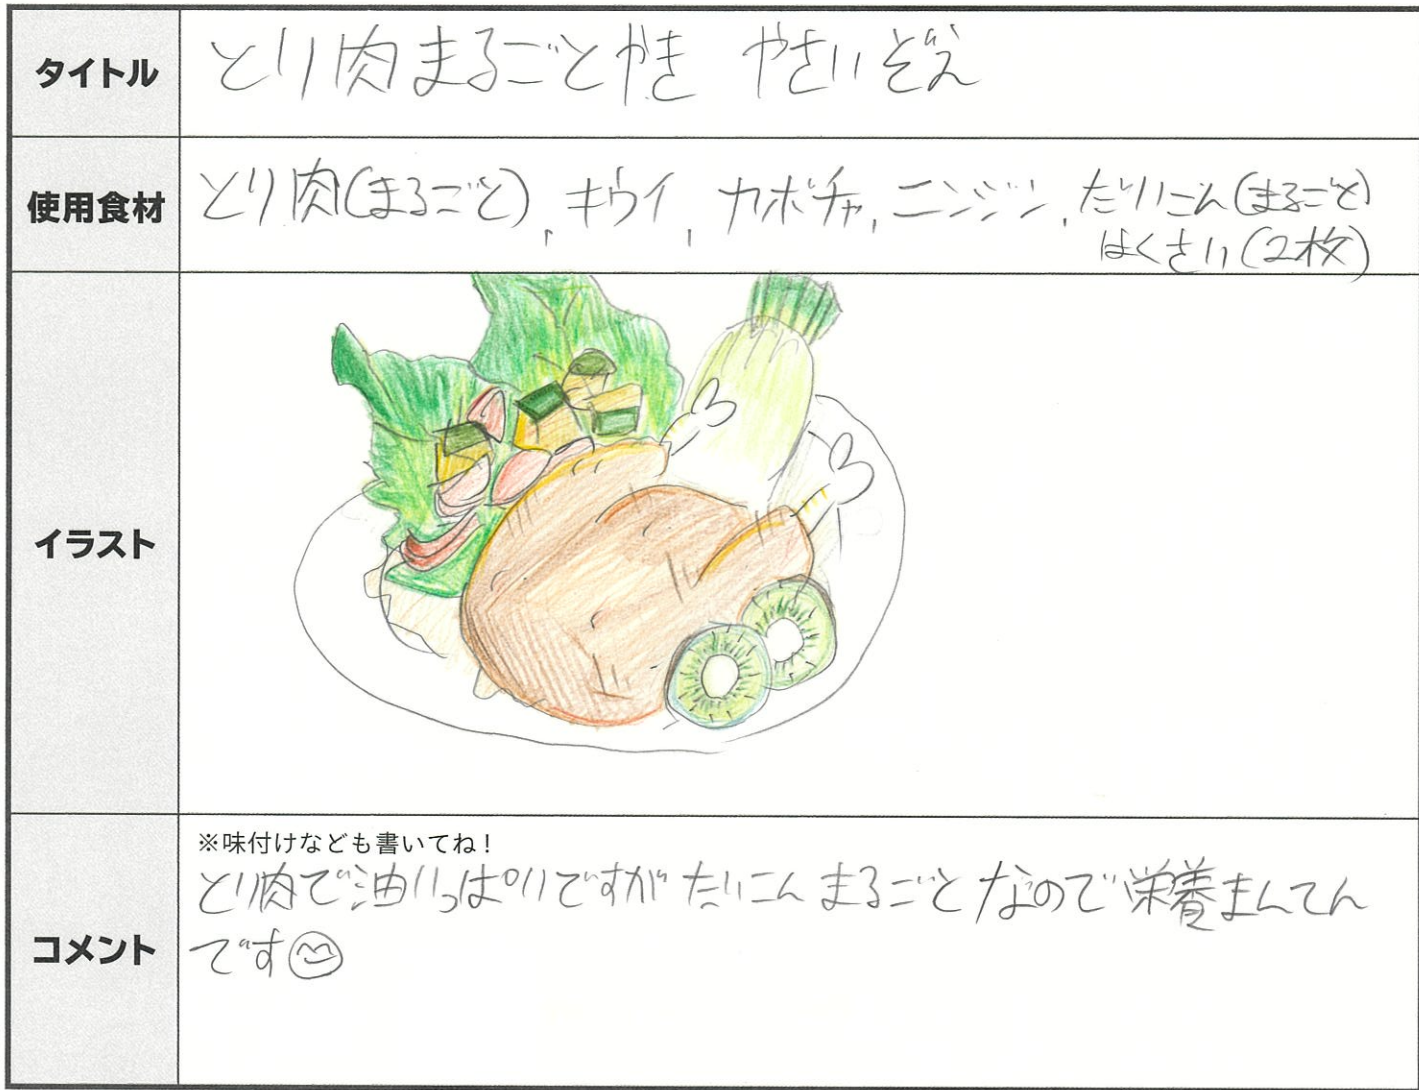 タイトル
とり肉まるごとやき やさいぞえ
使用食材
とり肉(まるごと), キウイ, カボチャ, ニンジン, だいこん(まるごと)
はくさい(2枚)
イラスト
コメント
※味付けなども書いてね!
とり肉で油いっぱいですが だいこん まるごと なので 栄養まんてん
です